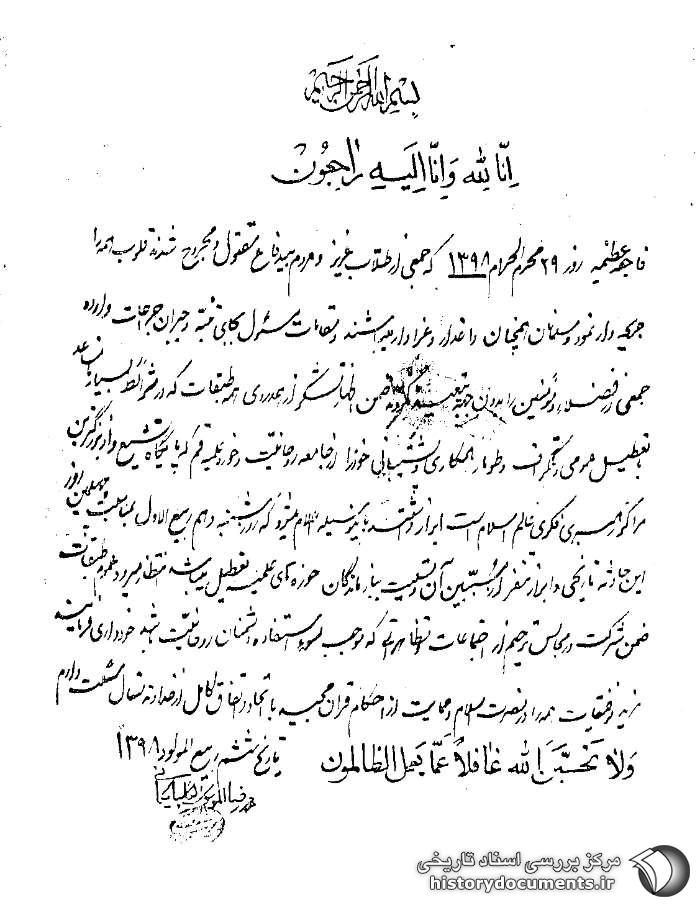 بسم الله الرحمن الرحیم
انّا لله وانّا الیه راجعون
فاجعه عظیمه روز ۲۹ محرم الحرام ۱۳۹۸ که جمعی از طلاب عزیز و مردم بیدفاع مقتول و مجروح شدند قلوب همه را
جریحه دار نمود و مسلمانان همچنان داغدار و عزادار میباشند و مقامات مسئول بجای فتنه و جبران جراحات وارده
جمعی از فضلاء و مؤمنین را بدون جهت تبعید کرده ضمن اظهار تشکر از همدردی همه طبقات که در شرائط بسیار
با تعطیل عمومی و تلگراف و طومار همکاری و پشتیبانی خود را از جامعه روحانیت و حوزه علمیه قم که پایگاه تشیع و از بزرگترین
مراکز رهبری فکری عالم اسلام است ابراز داشتند باینوسیله اعلام میشود که روز شنبه دهم ربیع الاول بمناسبت چهلمین روز
این حادثه تاریخی و ابراز تنفر از مسببین آن و تسلیت ببازماندگان حوزه های علمیه تعطیل میباشد انتظار میرود عموم طبقات
ضمن شرکت در مجالس ترحیم از اجتماعات و تظاهراتی که موجب سوء استفاده دشمنان روحانیت باشد خودداری فرمایند
مزید توفیقات همه را در نصرت اسلام و حمایت از احکام قرآن مجید با اتحاد و اتفاق کامل از خداوند متعال مسئلت دارم
ولا تحسبن الله غافلاً عمّا یعمل الظالمون بتاریخ ششم ربیع المولود ۱۳۹۸
محمد رضا الموسوی الگلپایگانی
مرکز بررسی اسناد تاریخی
historydocuments.ir